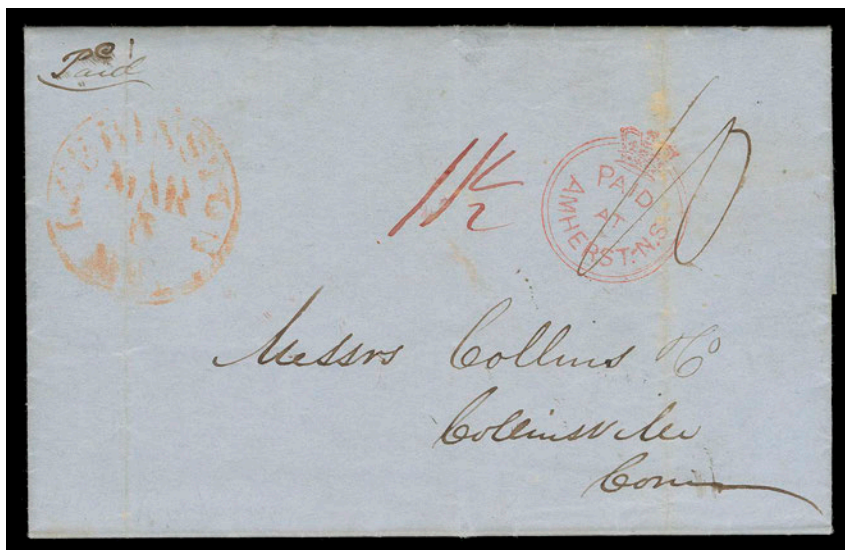 Paid
ROBBINSTON
MAR
1/1½
PAID
AT
AMHERST. N.S.
10
Messrs Collins & Co
Collinsville
Conn